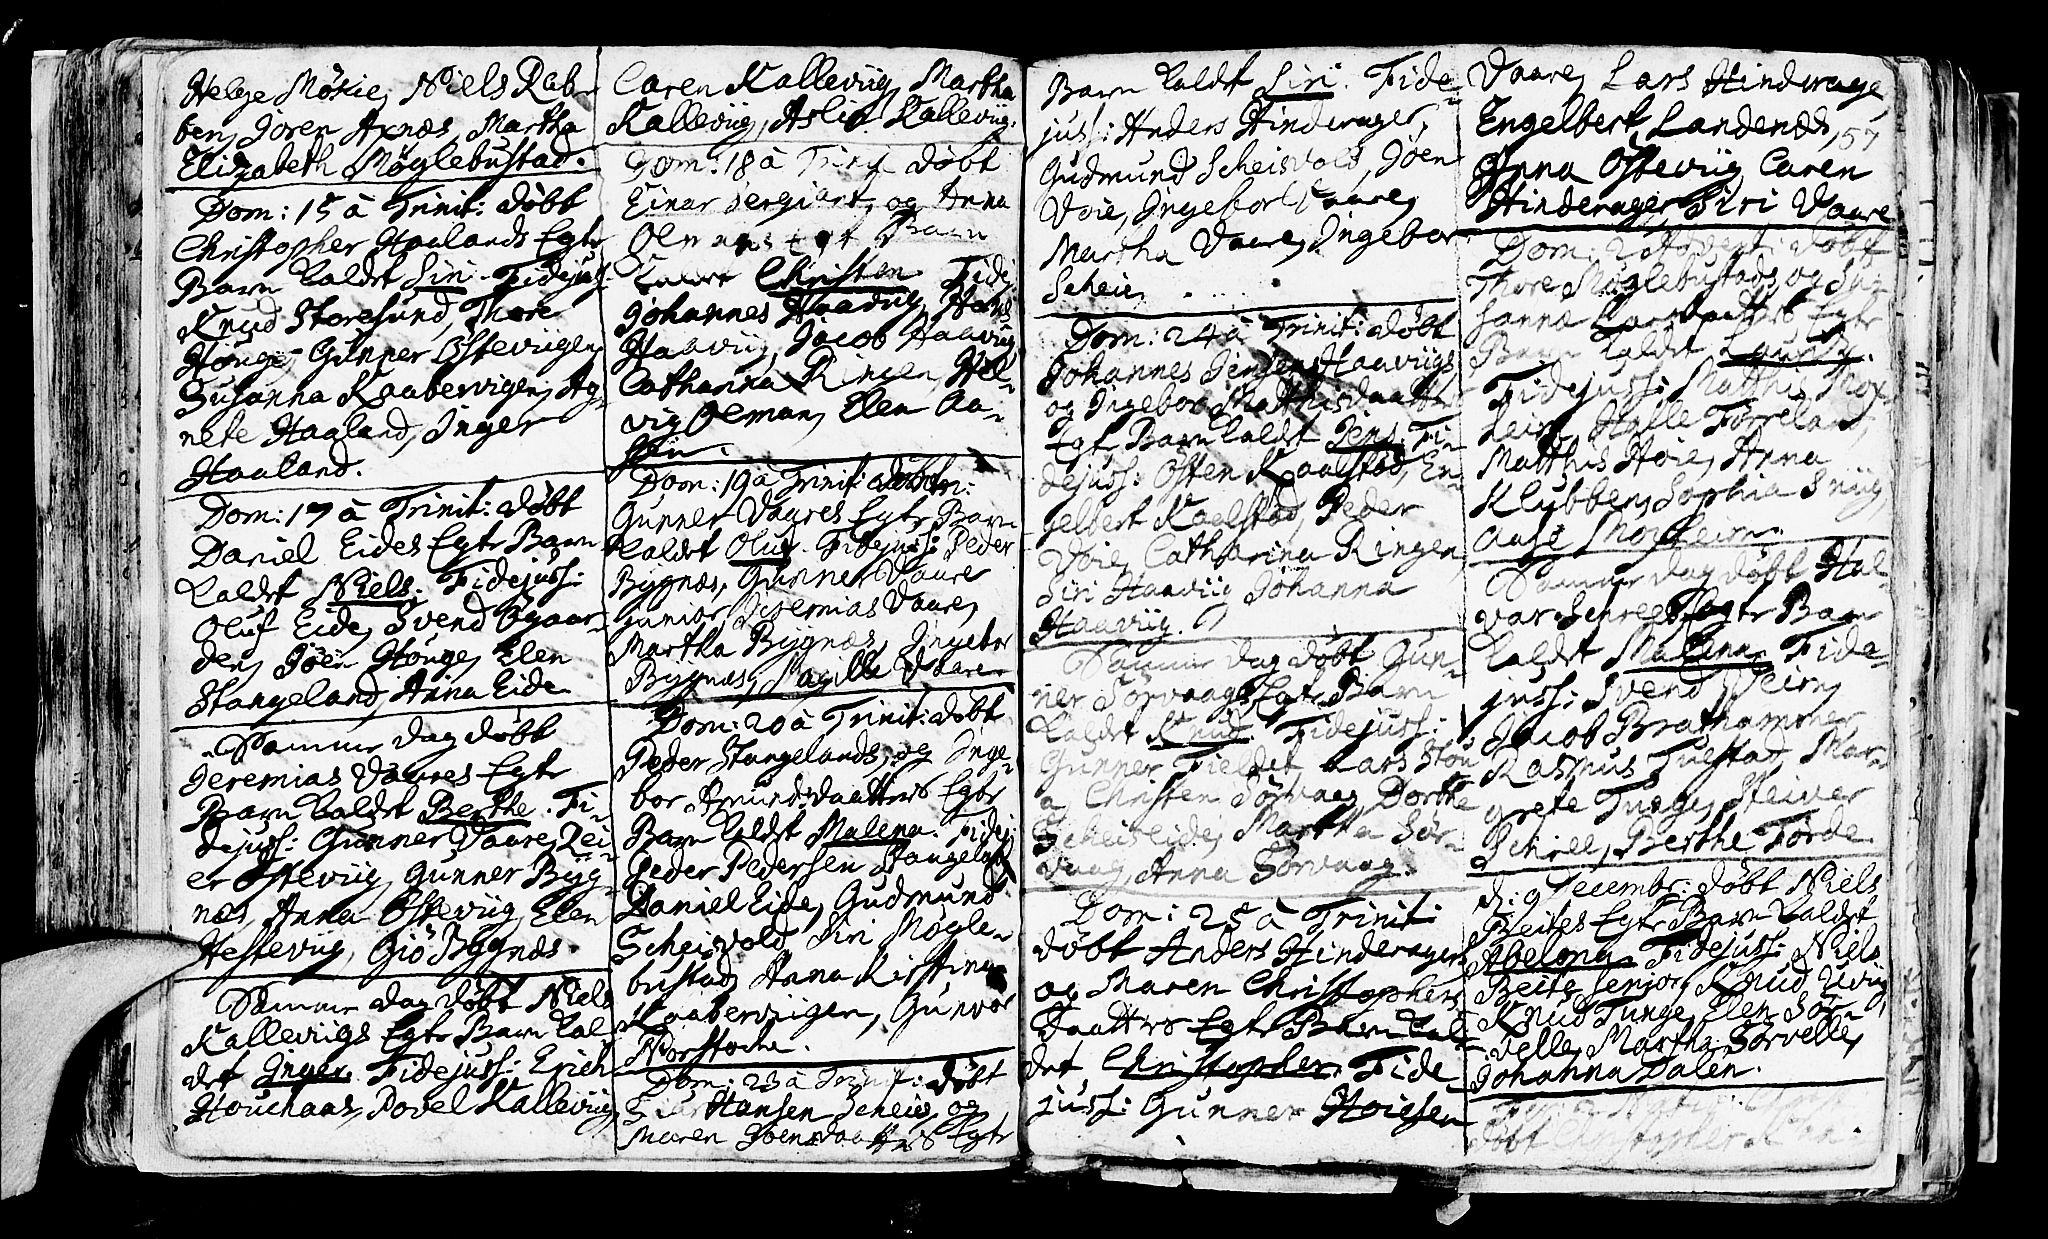 Helge Mökie, Niels Rab-
ben, Joren Axnæs, Martha
Elizabeth Möglebustad.
Dom: 15 à Trinit: döbt
Christopher Haalands Egte
Barn kaldet Siri. Fidejuss:
Knud Storesund, Thore
Hönge, Gunner Osteviigen,
Susanna Kaabervigen, Ag-
nete Haaland, Inger
Haaland.
Dom: 17 à Trinit: döbt
Daniel Eides Egte Barn
kaldet Niels. Fidejuss:
Oluf Eide, Svend Ögaar-
den, Joen Hönge, Elen
Stangeland, Anna Eide
Samme dag döbt
Jeremias Vaares Egte
Barn kaldet Berthe. Fi-
dejuss: Gunner Vaare, Rei-
er Osteviig, Gunner Byg-
næs, Anna Osteviig, Elen
Hesteviig, Giö Bygnæs.
Samme dag döbt Niels
Kallevigs Egte Barn kal-
det Inger. Fidejuss: Erich
Houchaas, Povel Kalleviig,
Caren Kalleviig, Martha
Kalleviig, Aslie Kalleviig.
Dom: 18 à Trinit: döbt
Einar Sergiant, og Anna
Barn
kaldet Christen Fidej:
Johannes Haaviig, Hans
Haaviig, Jacob Haaviig
Cathanna Ringen, Hel-
vig Oeman, Elen Aa-
sen.
Dom: 19 à Trinit: döbt
Gunner Vaares Egte Barn
kaldet Oluf. Fidejuss: Peder
Bygnæs, Gunner Vaare
junior, Jeremias Vaare,
Martha Bygnæs, Ingebor
Bygnæs, Magille Vaare
Dom: 20 à Trinit: döbt
Peder Stangelands, og Inge-
bor Amundsdaatters Egte
Barn kaldet Malena. Fidej:
Peder Pedersen Stangeland
Daniel Eide, Gudmund
Scheisvold, Siri Mögle-
bustad, Anna Kirstina
Kaaberviigen, Gunvor
Norstoche.
Dom: 23 à Trinit: döbt
Hansen Scheie, og
Maren Joensdaatters Egte
Barn kaldet Siri. Fide-
juss: Anders Hinderager,
Gudmund Scheisvold, Joen
Voie, Ingebor Vaare,
Martha Vaare, Ingebor
Scheie.
Dom: 24 à Trinit: döbt
Johannes Jensen Haaviigs
og Ingebor Matthisdaatters
Egte Barn kaldet Jens. Fi-
dejuss: Osten Kaalstad, En-
gelbert Kaelstad, Peder
Voie, Catharina Ringen,
Siri Haaviig Johanna
Haaviig.
Samme dag döbt Gun-
ner Sörvaags Egte Barn
kaldet Knud. Fidejuss:
Gunner Fieldet, Lars Stou
a Christen Sörvaag, Dorthe
Scheisleide, Martha Sör-
vaag, Anna Sörvaag.
Dom: 25 à Trinit:
döbt Anders Hinderagers
og Maren Christophers
daatters Egte Barn kal-
det Christopher. Fide-
juss: Gunner Hoiesen
Vaare, Lars Hinderage,
Engelbert Landenæs, 57
Anna Osteviig Caren
Hinderager, Siri Vaare
Dom: 2 Advent: döbt
Thore Möglebustads og Su-
sanna Egte
Barn kaldet
Fidejuss: Matthis Mox-
heim, Halle Förreland,
Matthis Hoie, Anna
Klubben, Sophia Sniig,
Aase Moxheim.
Samme dag döbt Hal-
var Schrees Egte Barn
kaldet Malenna Fide-
juss: Svend Veim,
Jacob Brathammer
Rasmus Tuestad, Mar-
grete Tunge, Steiner
Schree, Berthe Förde
d: 9 Decembr: döbt Niels
Beites Egte Barn kaldet
Abelona. Fidejuss: Niels
Beite senior, Knud Uviig,
Knud Tunge, Elen Sör-
velle, Martha Sörvelle,
Johanna Dalen.
döbt Christopher